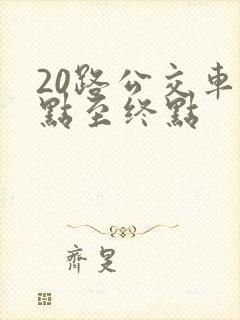 20路公交車
點至终點
齊是